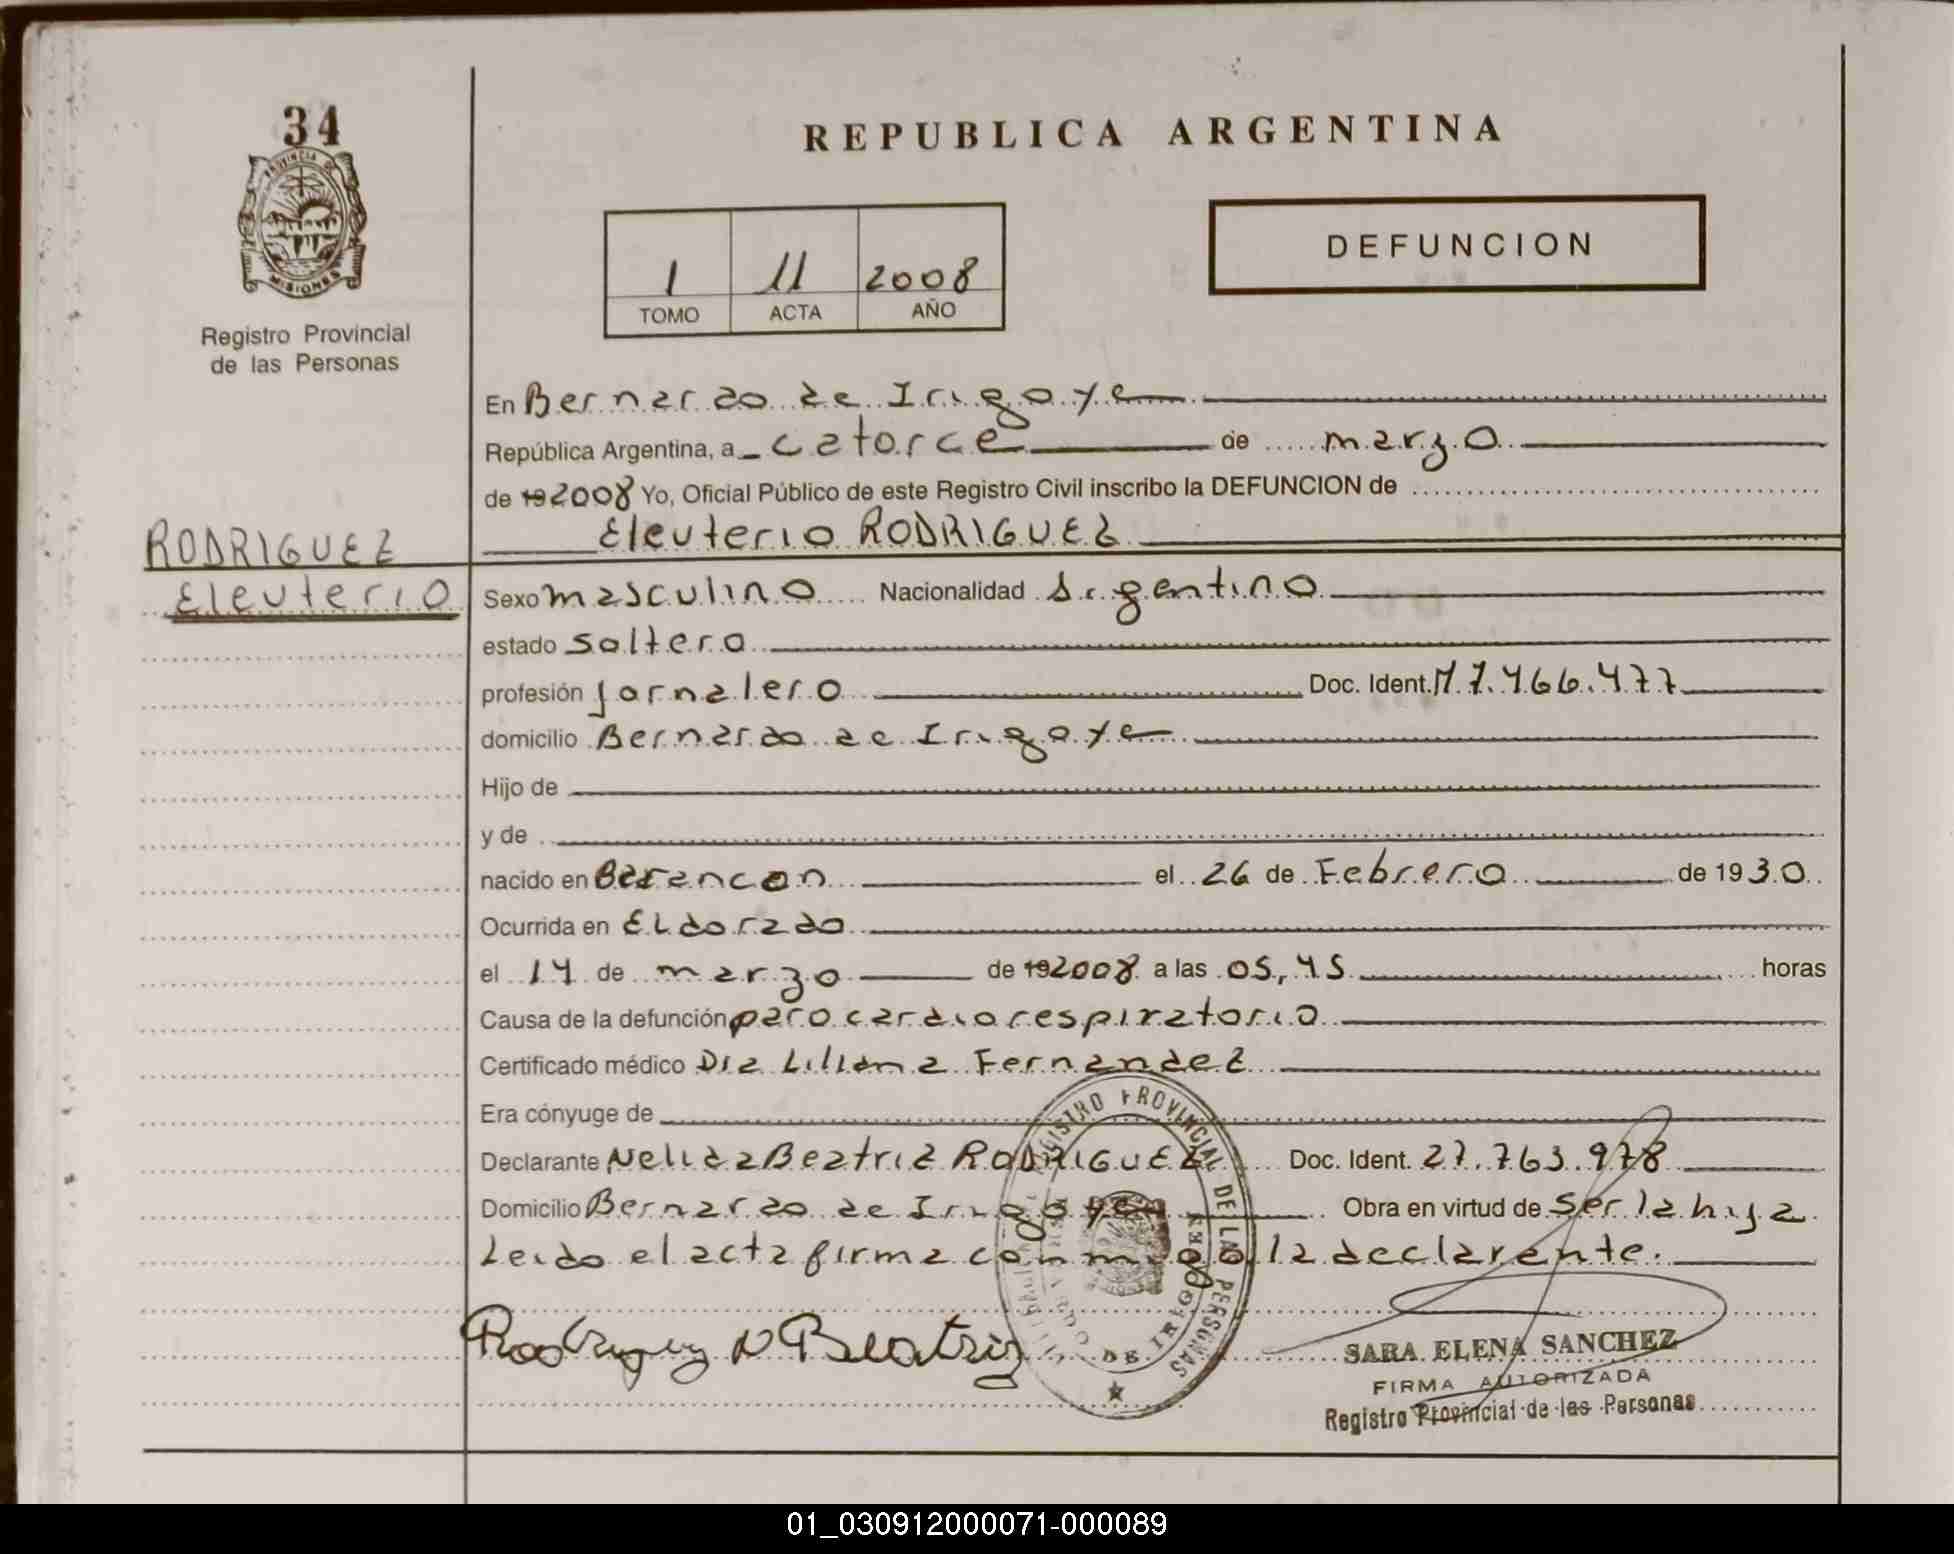 34
PROVINCIA DE
MISIONES
Registro Provincial
de las Personas
REPUBLICA ARGENTINA
1 11 2008
TOMO ACTA AÑO
DEFUNCION
En Bernardo de Irigoye
República Argentina, a catorce de marzo
de 19 2008 Yo, Oficial Público de este Registro Civil inscribo la DEFUNCION de
Eleuterio RODRIGUEZ
RODRIGUEZ
Eleuterio
Sexo masculino Nacionalidad Argentino
estado soltero
profesión jornalero Doc. Ident. M 7.466.477
domicilio Bernardo de Irigoye
Hijo de
y de
nacido en el 26 de Febrero de 1930
Ocurrida en ELdorado
el 14 de marzo de 19 2008 a las 05,45 horas
Causa de la defunción paro cardiorespiratorio
Certificado médico Dra Liliana Fernandez
Era cónyuge de
Declarante Nelida Beatriz RODRIGUEZ Doc. Ident. 27.763.978
Domicilio Bernardo de Irigoyen Obra en virtud de Ser la hija
Leido el acta firma conmigo la declarante.
Rodriguez N Beatriz
REGISTRO PROVINCIAL DE LAS PERSONAS
SARA ELENA SANCHEZ
FIRMA AUTORIZADA
Registro Provincial de las Personas
01_030912000071-000089